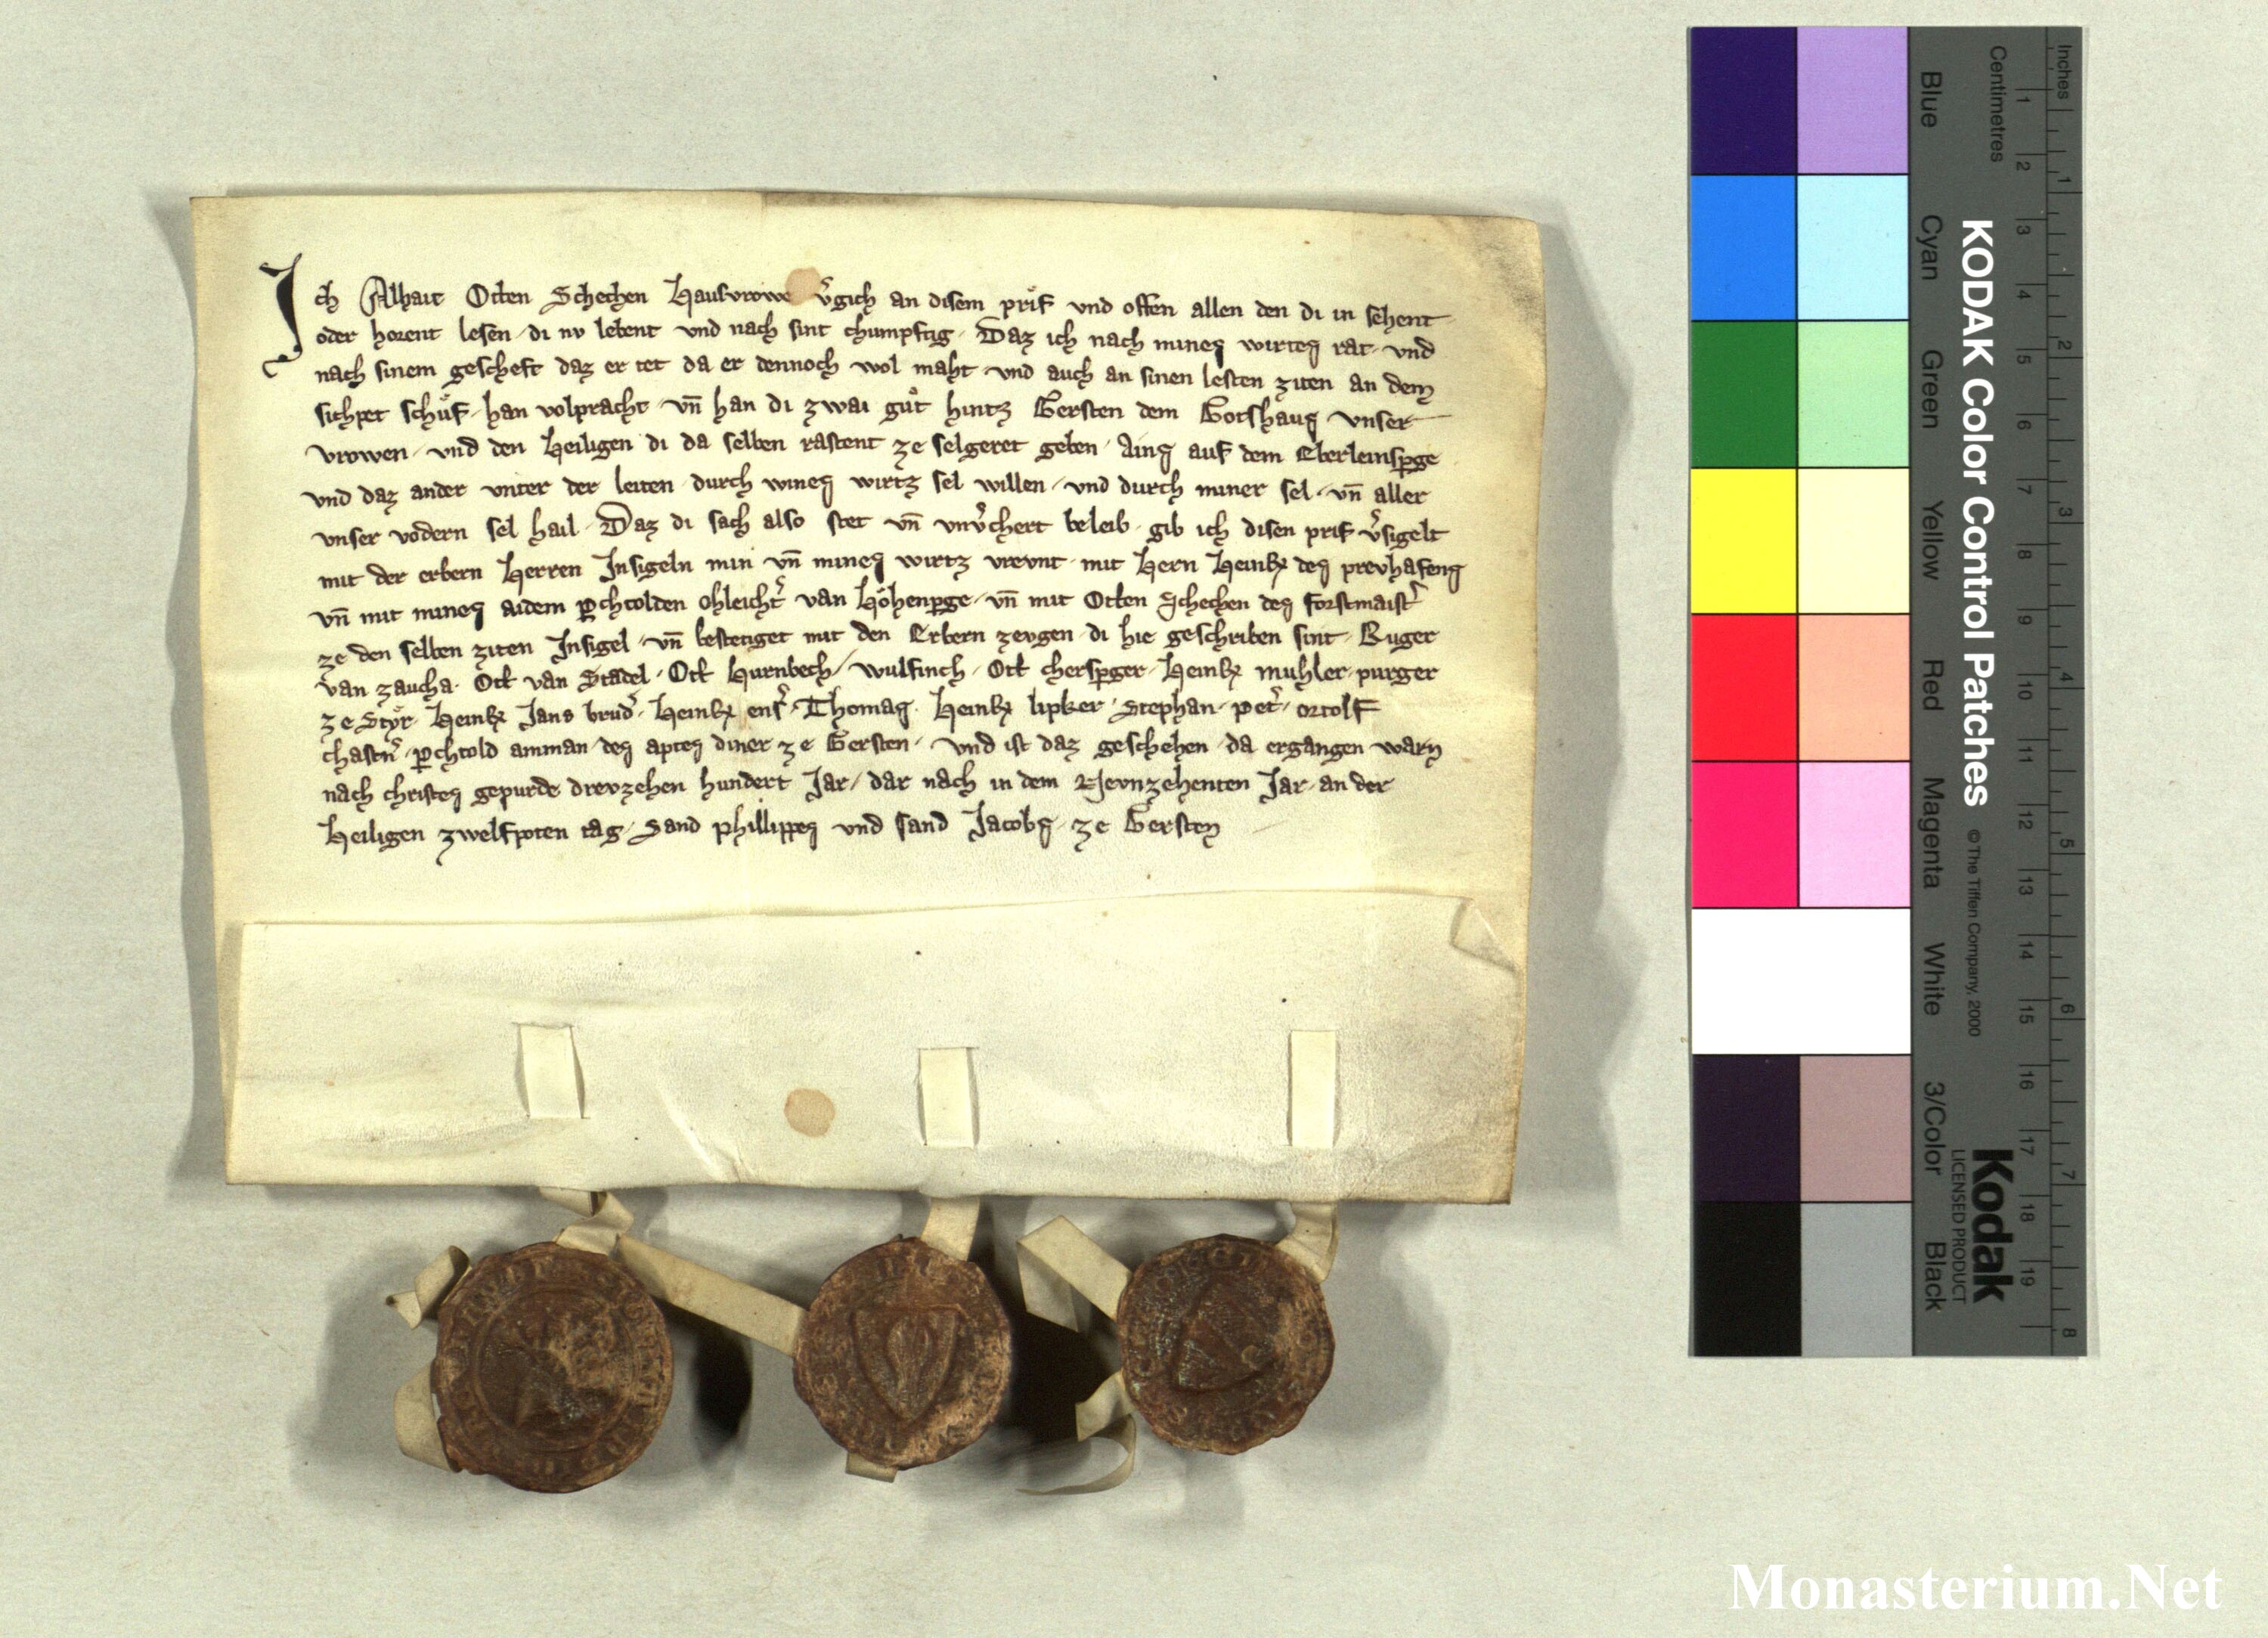 Ich Alhait Otten Schechen Hausvrowe v̓gich an disem prief und offen allen den di in sehent
oder horent lesen · di nv lebent und nach sint chumpftig · Daz ich nach mines wirtes rat · und
nach sinem gescheft daz er tet da er dennoch wol maht und auch an sinen lesten ziten an dem
sichpet schůf · han volpracht · vn̄ han di zwai gůt hintz Gersten dem Gotshaus unser
vrowen · und den Heiligen di da selben rastent ze selgeret geben · Ains auf dem Eberleinsp̱ge
und daz ander unter der leiten durch mines wirtz sel willen · und durch miner sel · vn̄ aller
unser vodern sel hail · Daz di sach also stet vn̄ unv̓chert beleib · gib ich disen prif v̓sigelt
mit der erbern Herren Insigeln min vn̄ mines wirtz vrevnt · mit Hern Heinr des prevhafens
vn̄ mit mines aidem P̱chtolden van Hohenp̱ge · vn̄ mit Otten Schechen des forstmaist̓
ze den selben ziten Insigel · vn̄ bestetiget mit den Erbern zevgen di hie geschriben sint · Ruger
van zaucha · Ott van Stadel · Ott Hurnbech / wulfinch · Ott chersp̱ger · Heinr muhler purger
ze Styr · Heinr Jans brud̓ · Heinr ens̓ · Thomas · Heinr lipker · Stephan · pet̓ · ortolf
chastn̓ · P̱chtold amman des aptes diner ze Gersten · Und ist daz geschehen da ergangen warn
nach christes gepurde drevzehen hundert Jar / dar nach in dem Nevnzehenten Jar · an der
Heiligen zwelfpoten tag · Sand phillippes und sand Jacobs · ze Gersten
KODAK Color Control Patches
© The Tiffen Company, 2000
Kodak
LICENSED PRODUCT
Inches
1 2 3 4 5 6 7 8
Centimetres
1 2 3 4 5 6 7 8 9 10 11 12 13 14 15 16 17 18 19
Blue
Cyan
Green
Yellow
Red
Magenta
White
3/Color
Black
Monasterium.Net